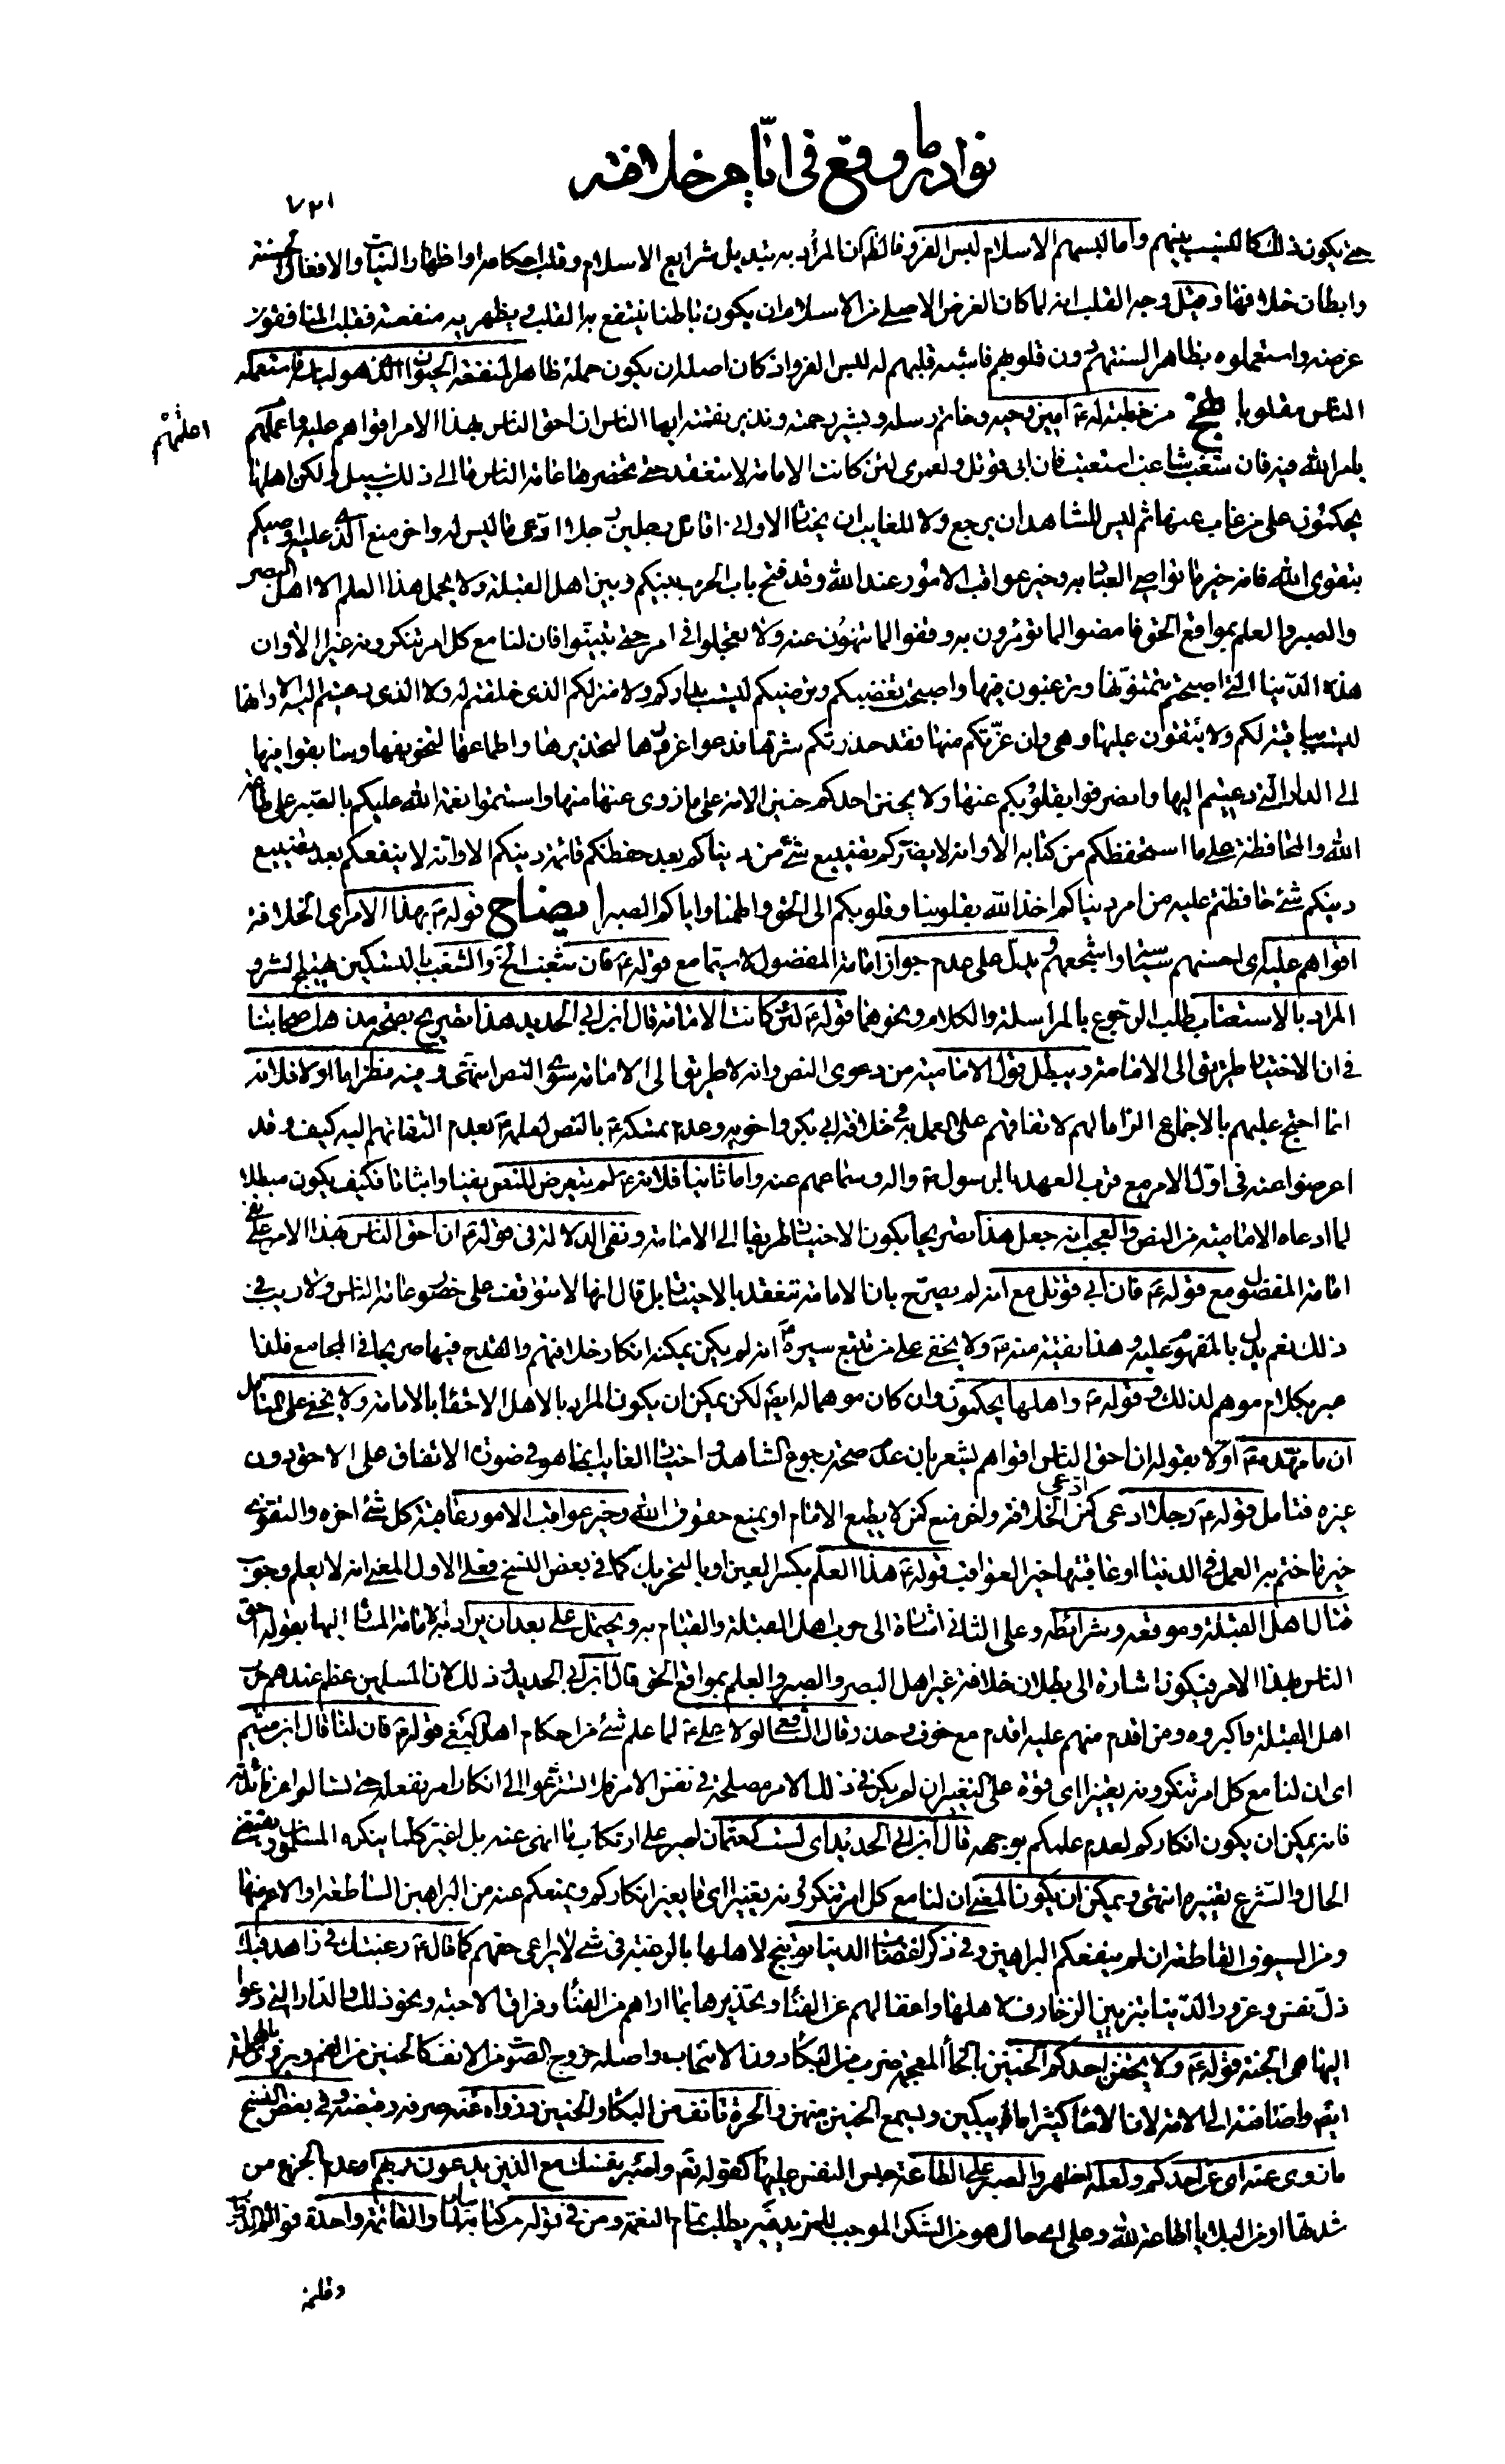 نوادر ما وقع فى ايّام خلافته
٧٢١
حتى يكون ذلك كالنسب بينهم واما لبسهم الاسلام لبس الفرو فالظ ان المراد به تبديل شرايع الاسلام وقلب احكامه او اظهار النيات والافعال الحسنة
وابطان خلافها وقيل وجه القلب انه لما كان الغرض الاصلى من الاسلام ان يكون باطنا ينتفع به القلب ويظهر به منفعته فقلب المنافقون
غرضه واستعملوه بظاهر السنتهم دون قلوبهم فاشبه قلبهم له لبس الفرو اذ كان اصله ان يكون حمله ظاهرا لمنفعة الحيوان الذى هو لباسه فاستعمله
الناس مقلوبا نهج من خطبة له ع امين وحيه وخاتم رسله وبشير رحمته ونذير نقمته ايها الناس ان احق الناس بهذا الامر اقواهم عليه واعملهم
اعلمهم
بامر الله فيه فان شغب شاغب استعتب فان ابى قوتل ولعمرى لئن كانت الامامة لا تنعقد حتى تحضرها عامة الناس ما الى ذلك سبيل ولكن اهلها
يحكمون على من غاب عنها ثم ليس للشاهد ان يرجع ولا للغايب ان يختار الا وانى اقاتل رجلين رجلا ادّعى ما ليس له واخر منع الذى عليه اوصيكم
بتقوى الله فانه خير ما تواصى العباد به وخير عواقب الامور عند الله وقد فتح باب الحرب بينكم وبين اهل القبلة ولا يحمل هذا العلم الا اهل البصر
والصبر والعلم بمواقع الحق فامضوا لما تؤمرون به وقفوا لما تنهون عنه ولا تعجلوا فى امر حتى تتبيّنوا فان لنا مع كل امر تنكرونه غيرا الا وان
هذه الدّنيا التى اصبحتم تتمنّونها وترغبون فيها واصبحت تغضبكم وترضيكم ليست بداركم ولا منزلكم الذى خلقتم له ولا الذى دعيتم اليه الا وانها
ليست بباقية لكم ولا تبقون عليها وهى وان غرّتكم منها فقد حذرتكم شرها فدعوا غرورها لتحذيرها واطماعها لتخويفها وسابقوا فيها
الى الدار التى دعيتم اليها وانصرفوا بقلوبكم عنها ولا يخنن احدكم خنين الامة على ما زوى عنها منها واستتموا نعمة الله عليكم بالصبر على طاعة
الله والمحافظة على ما استحفظكم من كتابه الا وانه لا يضرّكم تضييع شئ من دنياكم بعد حفظكم قائمة دينكم الا وانّه لا ينفعكم بعد تضييع
دينكم شئ حافظتم عليه من امر دنياكم اخذ الله بقلوبنا وقلوبكم الى الحق والهمنا واياكم الصبر ايضاح قوله ع بهذا الامر اى الخلافة
اقواهم عليه اى احسنهم سياسة واشجعهم ويدلّ على عدم جواز امامة المفضول لا سيّما مع قوله ع فان شغب الخ والشغب بالتسكين تهييج الشر و
المراد بالاستعتاب طلب الرجوع بالمراسلة والكلام ونحوهما قوله ع لئن كانت الامامة قال ابن ابى الحديد هذا تصريح بصحة مذهب اصحابنا
فى ان الاختيار طريق الى الامامة ويبطل قول الامامية من دعوى النص وانه لا طريق الى الامامة سوى النص انتهى وفيه نظر اما اولا فلانه
انما احتج عليهم بالاجماع الزاما لهم لاتفاقهم على العمل به فى خلافة ابى بكر واخويه وعدم تمسكه ع بالنص لعلمه ع بعدم التفاتهم اليه كيف وقد
اعرضوا عنه فى اوّل الامر مع قرب العهد بالرسول ص واله وسماعهم عنه واما ثانيا فلانه ع لم يتعرض للنص نفيا واثباتا فكيف يكون مبطلا
لما ادعاه الامامية من النص والعجب انه جعل هذا تصريحا بكون الاختيار طريقا الى الامامة ونفى الدلالة فى قوله ع ان احق الناس بهذا الامر على نفى
امامة المفضول مع قوله ع فان ابى قوتل مع انه لم يصرّح بان الامامة تنعقد بالاختيار بل قال انها لا تتوقف على حضور عامة الناس ولا ريب فى
ذلك نعم يدل بالمفهوم عليه وهذا تقية منه ع ولا يخفى على من تتبع سيره ع انه لم يكن يمكنه انكار خلافتهم والقدح فيها صريحا فى المجامع فلذا
عبر بكلام موهم لذلك وقوله ع واهلها يحكمون وان كان موهما له ايضا لكن يمكن ان يكون المراد بالاهل الاحقاء بالامامة ولا يخفى على المتامل
ان ما مهّده ع اوّلا بقوله ان احق الناس اقواهم يشعر بان عدم صحة رجوع الشاهد واختيار الغايب انما هو فى صورة الاتفاق على الاحق دون
غيره فتامل قوله ع رجلا ادعى كمن ادعى الخلافة واخر منع كمن لا يطيع الامام او يمنع حقوق الله وخير عواقب الامور عاقبة كل شئ اخره والتقوى
خير ما ختم به العمل فى الدنيا او عاقبتها خير العواقب قوله ع هذا العلم بكسر العين او بالتحريك كما فى بعض النسخ فعلى الاول المعنى انه لا يعلم وجوب
قتال اهل القبلة وموقعه وشرائطه وعلى الثانى اشارة الى حرب اهل القبلة والقيام به ويحتمل على بعد ان يراد به الامامة المشار اليها بقوله احق
الناس بهذا الامر فيكون اشارة الى بطلان خلافة غير اهل البصر والصبر والعلم بمواقع الحق قال ابن ابى الحديد وذلك لان المسلمين عظم عندهم حرب
اهل القبلة واكبروه ومن اقدم منهم عليه اقدم مع خوف وحذر وقال الشافعى لولا على ع لما علم شئ من احكام اهل البغى قوله ع فان لنا قال ابن ميثم
اى ان لنا مع كل امر تنكرونه تغييرا اى قوة على التغيير ان لم يكن فى ذلك الامر مصلحة فى نفس الامر فلا تتسرعوا الى انكار امر نفعله حتى تسالوا عن فائدته
فانه يمكن ان يكون انكاركم لعدم علمكم بوجهه قال ابن ابى الحديد اى لست كعثمان اصر على ارتكاب ما انهى عنه بل اغير كلما ينكره المسلمون ويقتضى
الحال والشرع تغييره انتهى ويمكن ان يكون المعنى ان لنا مع كل امر تنكرونه تغييرا اى ما يغير انكاركم ويمنعكم عنه من البراهين الساطعة او الاعم منها
ومن السيوف القاطعة ان لم ينفعكم البراهين وفى ذكر اغضاب الدنيا توبيخ لاهلها بالرغبة فى شئ لا يراعى حقهم كما قال ع رغبتك فى زاهد فيك
ذلّ نفس وغرور الدّنيا بتزيين الزخارف لاهلها واغفالهم عن الفناء وتحذيرها بما اراهم من الفناء وفراق الاحبة ونحو ذلك والدّار التى دعوا
اليها هى الجنة قوله ع ولا يخنن احدكم الخنين بالخاء المعجمة ضرب من البكاء دون الانتحاب واصله خروج الصوت من الانف كالحنين من الفم ويروى بالمهملة
ايضا واضافته الى الامة لان الاماء كثيرا ما يبكين ويسمع الحنين منهن والحرة تانف من البكاء والحنين وزواه عنه صرفه وقبضه وفى بعض النسخ
ما زوى عنه اى عن احدكم ولعله اظهر والصبر على الطاعة حبس النفس عليها كقوله تع واصبر نفسك مع الذين يدعون ربهم او عدم الجزع من
شدتها او من البلايا اطاعة لله وعلى اى حال هو من الشكر الموجب للمزيد فبه يطلب تمام النعمة ومن فى قوله من كتابه بيان لما والقائمة واحدة قوائم الدواب
وقلمه